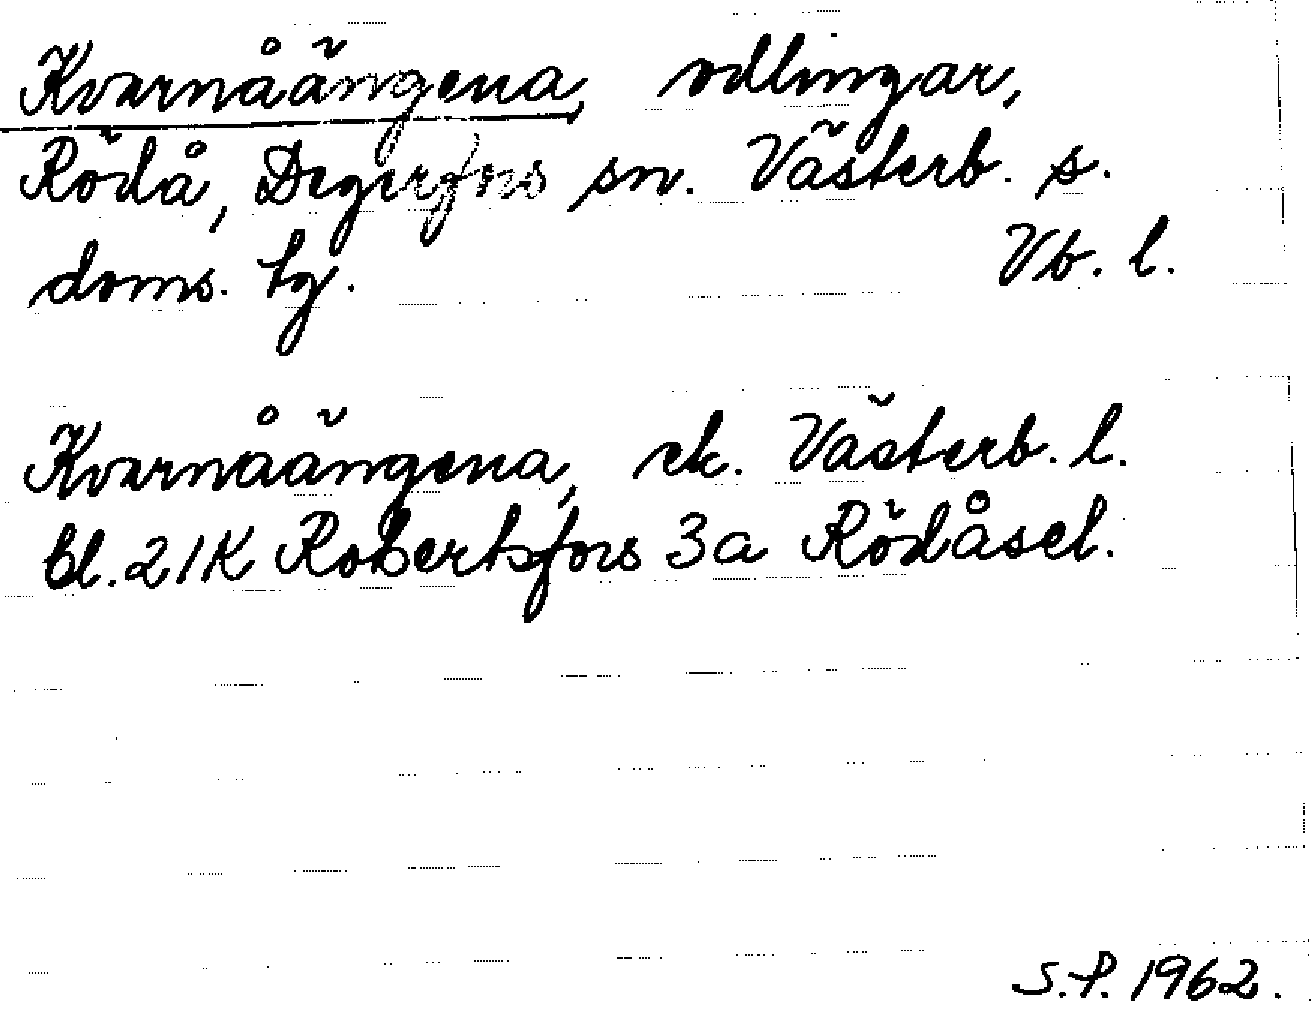 Kvarnåängena, odlingar,
Rödå, Degerfors sn. Västerb. s.
doms. tg. Vb. l.
Kvarnåängena, ek. Västerb. l.
bl. 21K Robertsfors 3a Rödåsel.
S.P. 1962.